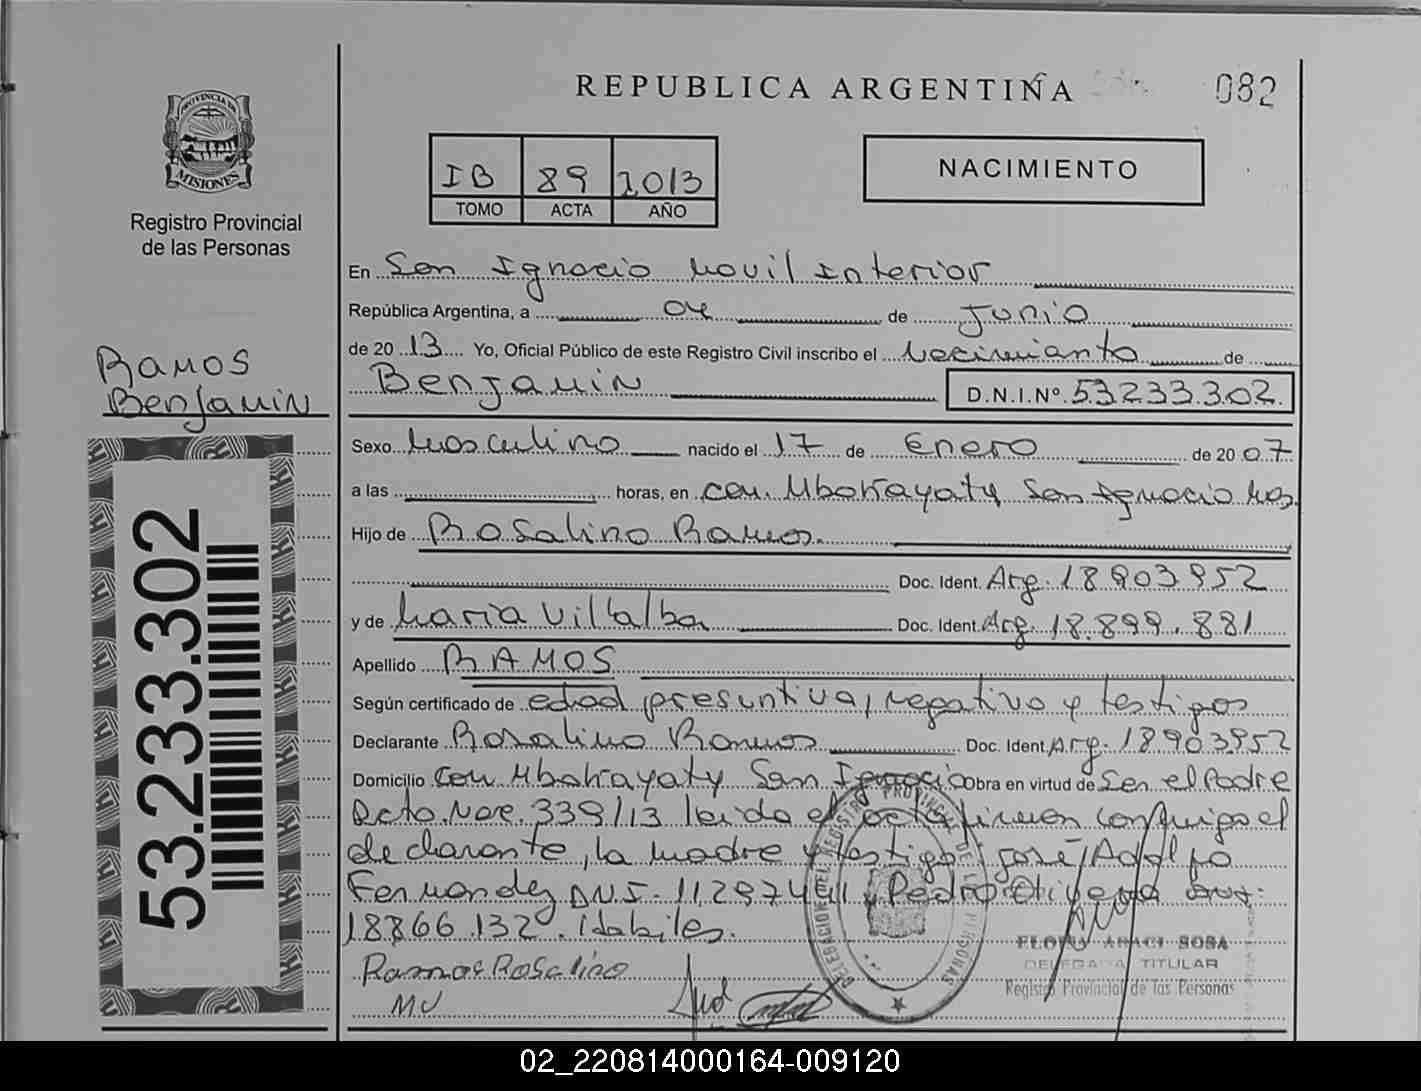 REPUBLICA ARGENTINA
082
PROVINCIA DE
MISIONES
Registro Provincial
de las Personas
IB 89 2013
TOMO ACTA AÑO
NACIMIENTO
En San Ignacio Movil Interior
República Argentina, a 04 de Junio
de 2013 Yo, Oficial Público de este Registro Civil inscribo el Nacimiento de
Benjamin D.N.I.Nº 53233.302.
Ramos
Benjamin
Sexo Masculino nacido el 17 de Enero de 2007
a las horas, en com. Mbokayaty San Ignacio Mns.
Hijo de Rosalino Ramos.
Doc. Ident. Arg. 18903952
y de Maria Villalba Doc. Ident. Arg. 18.899.881
Apellido RAMOS
Según certificado de edad presuntiva, negativo y testigos
Declarante Rosalino Ramos Doc. Ident. Arg. 18903952
Domicilio com Mbokayaty San Ignacio Obra en virtud de Ser el Padre
Dcto. Nac. 339/13 leida el acta firman conmigo el
declarante, la madre y testigos José Adolfo
Fernandez DNI. 11297441 Pedro Olivera Arg:
18866.132. Habiles.
Ramos Rosalino
MV
53.233.302
DELEGACION DEL REGISTRO PROVINCIAL DE LAS PERSONAS
ARACI SOSA
DELEGADA TITULAR
Registro Provincial de las Personas
02_220814000164-009120